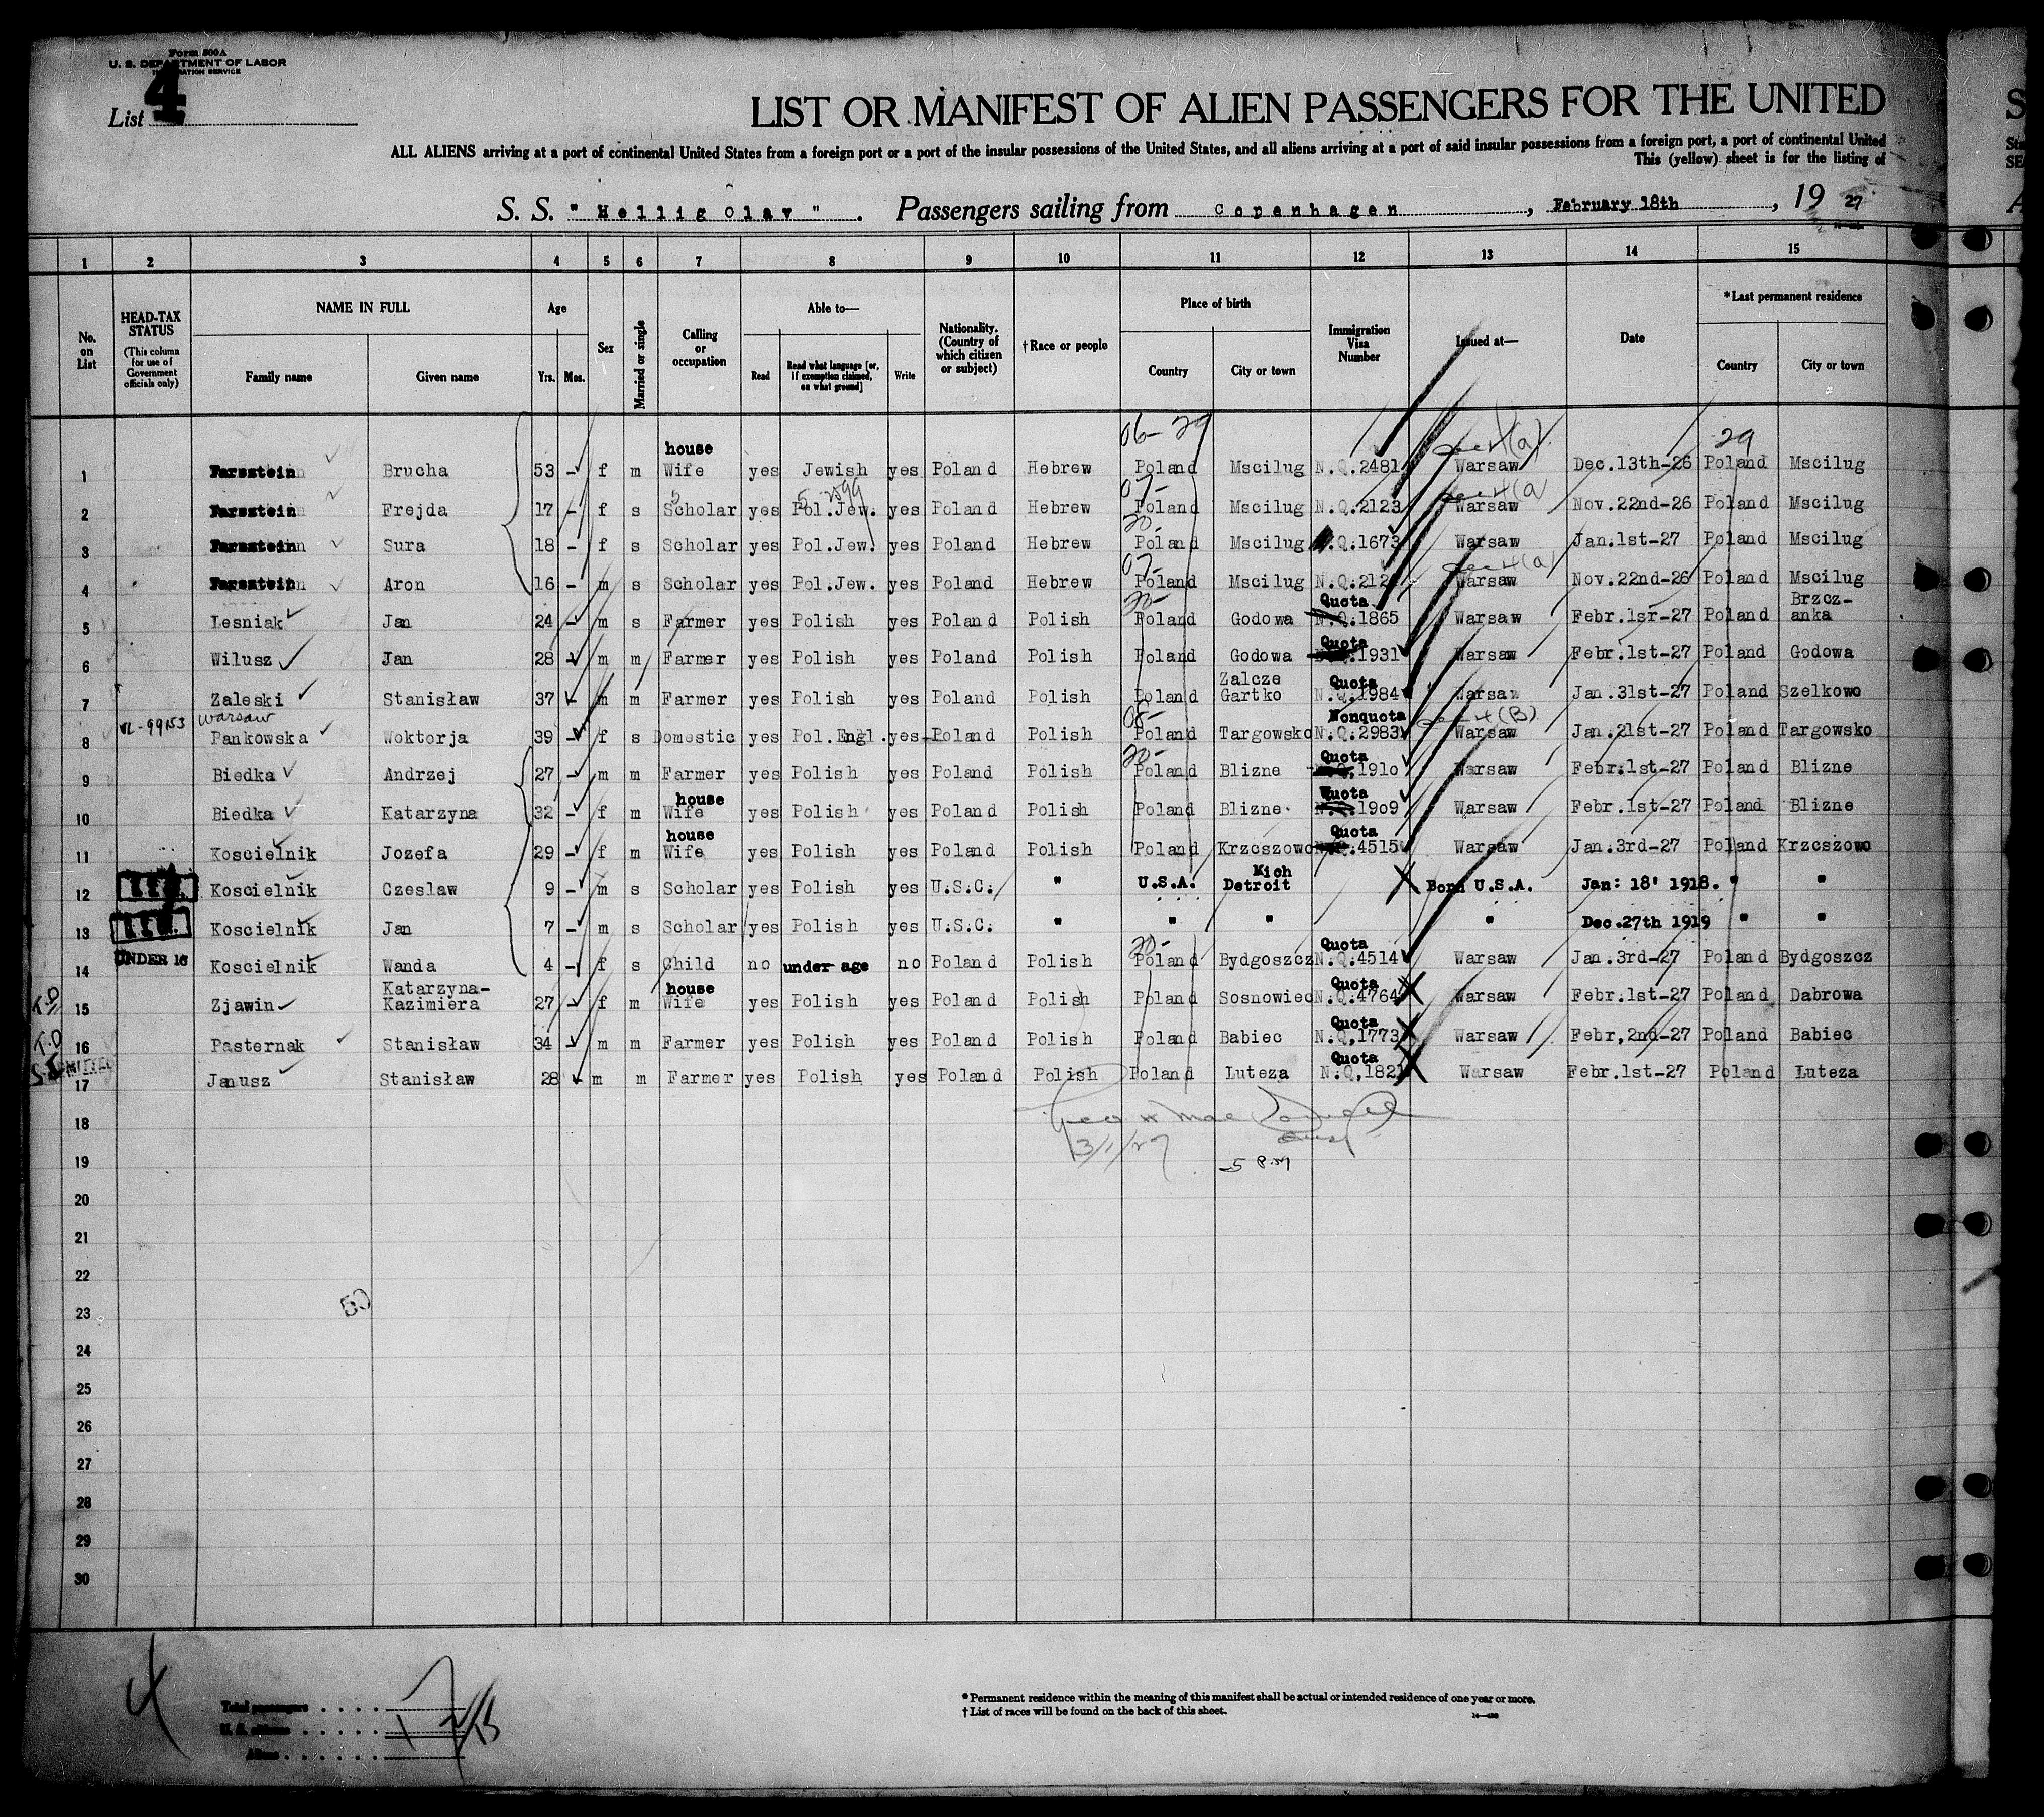 Form 500A
U. S. DEPARTMENT OF LABOR
IMMIGRATION SERVICE
List 4
LIST OR MANIFEST OF ALIEN PASSENGERS FOR THE UNITED
ALL ALIENS arriving at a port of continental United States from a foreign port or a port of the insular possessions of the United States, and all aliens arriving at a port of said insular possessions from a foreign port, a port of continental United
This (yellow) sheet is for the listing of
S. S. "Hellig Olav". Passengers sailing from Copenhagen, February 18th, 19 27
1 2 3 4 5 6 7 8 9 10 11 12 13 14 15
No. on List
HEAD-TAX STATUS (This column for use of Government officials only)
NAME IN FULL
Family name Given name
Age
Yrs. Mos.
Sex
Married or single
Calling or occupation
Able to—
Read Read what language [or, if exemption claimed, on what ground] Write
Nationality. (Country of which citizen or subject)
†Race or people
Place of birth
Country City or town
Immigration Visa Number
Issued at—
Date
*Last permanent residence
Country City or town
06- 29 29
1 Brucha 53 - f m house Wife yes Jewish yes Poland Hebrew Poland Mscilug N.Q.2481 Warsaw Dec.13th-26 Poland Mscilug
2 Frejda 17 - f s Scholar yes Pol.Jew. yes Poland Hebrew Poland Mscilug N.Q.2123 Warsaw Nov.22nd-26 Poland Mscilug
3 Sura 18 - f s Scholar yes Pol.Jew. yes Poland Hebrew Poland Mscilug Q.1673 Warsaw Jan.1st-27 Poland Mscilug
4 Aron 16 - m s Scholar yes Pol.Jew. yes Poland Hebrew Poland Mscilug Warsaw Nov.22nd-26 Poland Mscilug
5 Lesniak Jan 24 - m s Farmer yes Polish yes Poland Polish Poland Godowa Quota N.Q.1865 Warsaw Febr.1sr-27 Poland Brzcz-anka
6 Wilusz Jan 28 - m m Farmer yes Polish yes Poland Polish Poland Godowa Quota 1931 Warsaw Febr.1st-27 Poland Godowa
7 Zaleski Stanisław 37 - m m Farmer yes Polish yes Poland Polish Poland Zalcze Gartko Quota N.Q.1984 Warsaw Jan.31st-27 Poland Szelkowo
VL-99153 Warsaw
8 Pankowska Woktorja 39 - f s Domestic yes Pol.Engl. yes Poland Polish Poland Targowsko Nonquota N.Q.2983 Warsaw Jan.21st-27 Poland Targowsko
9 Biedka Andrzej 27 - m m Farmer yes Polish yes Poland Polish Poland Blizne Quota 1910 Warsaw Febr.1st-27 Poland Blizne
10 Biedka Katarzyna 32 - f m house Wife yes Polish yes Poland Polish Poland Blizne Quota 1909 Warsaw Febr.1st-27 Poland Blizne
11 Koscielnik Jozefa 29 - f m house Wife yes Polish yes Poland Polish Poland Krzcszowo Quota 4515 Warsaw Jan.3rd-27 Poland Krzcszowo
12 Koscielnik Czeslaw 9 - m s Scholar yes Polish yes U.S.C. " U.S.A. Mich Detroit Born U.S.A. Jan: 18' 1918. " "
13 Koscielnik Jan 7 - m s Scholar yes Polish yes U.S.C. " " " " Dec.27th 1919 " "
14 UNDER 16 Koscielnik Wanda 4 - f s Child no under age no Poland Polish Poland Bydgoszcz Quota N.Q.4514 Warsaw Jan.3rd-27 Poland Bydgoszcz
15 Zjawin Katarzyna-Kazimiera 27 - f m house Wife yes Polish yes Poland Polish Poland Sosnowiec Quota N.Q.4764 Warsaw Febr.1st-27 Poland Dabrowa
16 Pasternak Stanisław 34 - m m Farmer yes Polish yes Poland Polish Poland Babiec Quota N.Q.1773 Warsaw Febr.2nd-27 Poland Babiec
17 Janusz Stanisław 28 - m m Farmer yes Polish yes Poland Polish Poland Luteza Quota N.Q.1821 Warsaw Febr.1st-27 Poland Luteza
18
3/1/27
19 5 P.M
20
21
22
23
24
25
26
27
28
29
30
4
Total passengers
U. S. citizens
Aliens
* Permanent residence within the meaning of this manifest shall be actual or intended residence of one year or more.
† List of races will be found on the back of this sheet.